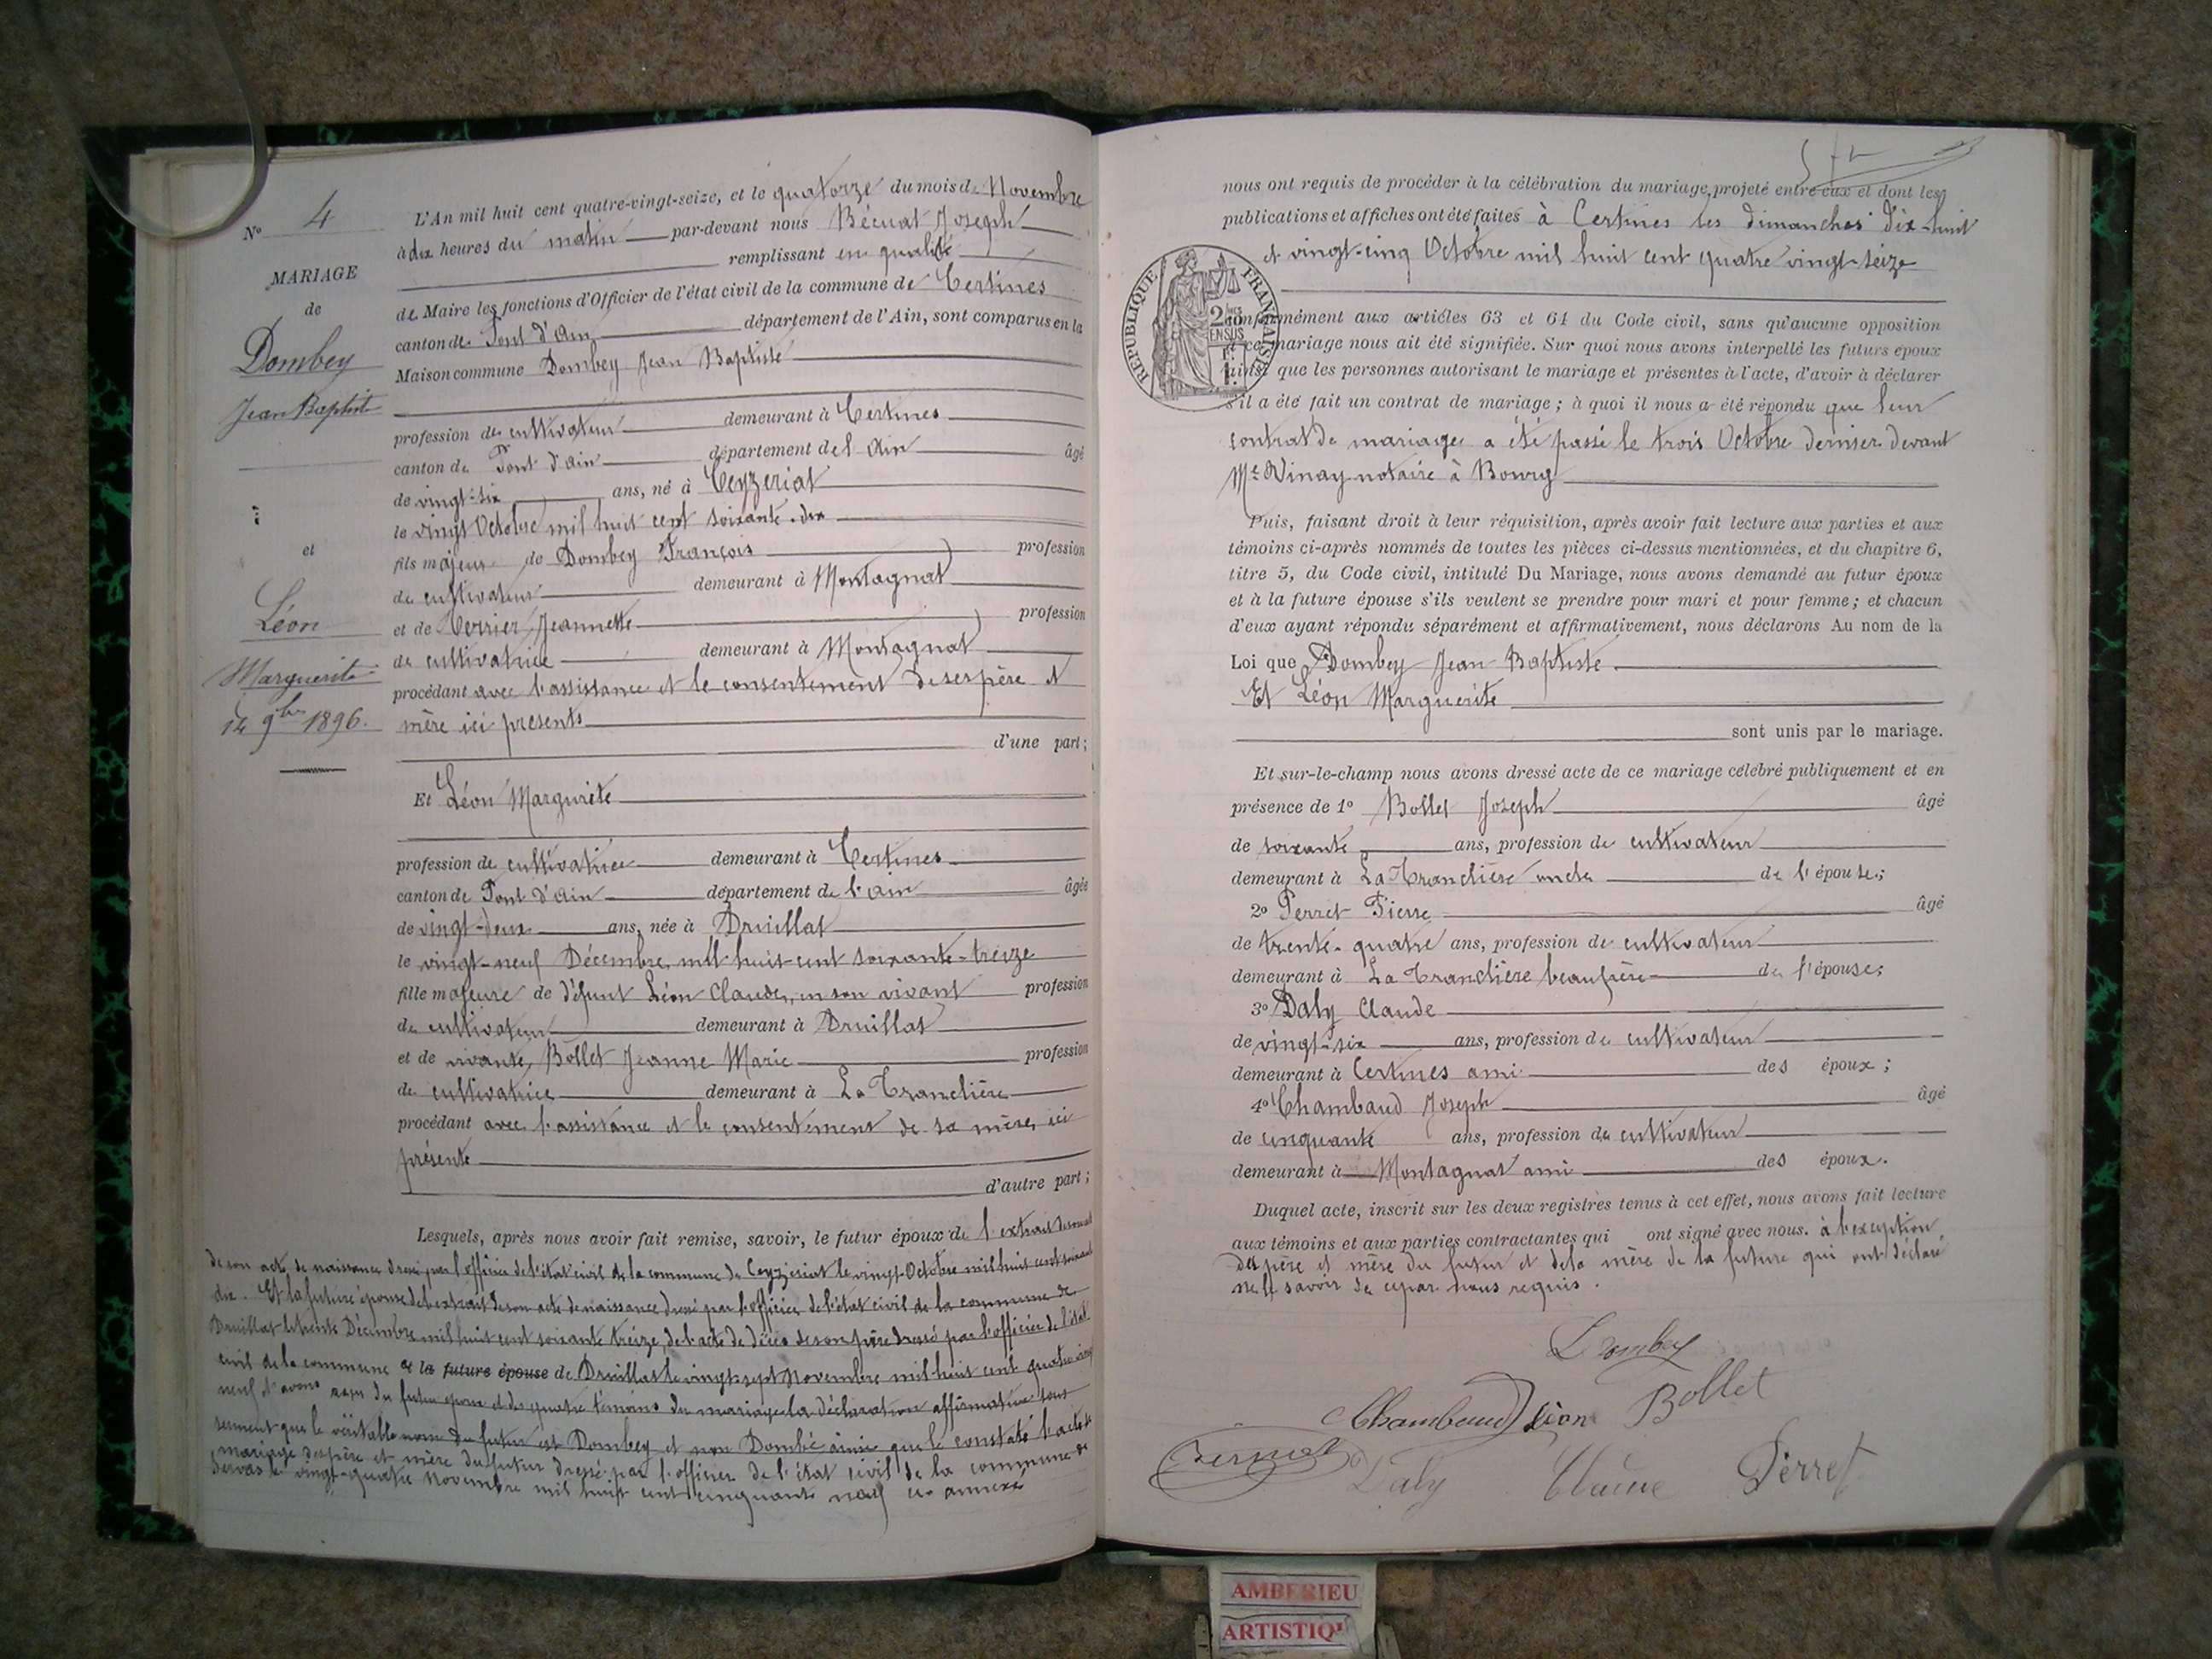 N° 4
MARIAGE
de
Dombey
Jean Baptiste
et
Léon
Marguerite
14 9bre 1896.
L'An mil huit cent quatre-vingt-seize, et le quatorze du mois de Novembre
à dix heures du matin par-devant nous Bécuat Joseph
remplissant en qualité
de Maire les fonctions d'Officier de l'état civil de la commune de Certines
canton de Pont d'Ain département de l'Ain, sont comparus en la
Maison commune Dombey Jean Baptiste
profession de cultivateur demeurant à Certines
canton de Pont d'Ain département de l'Ain âgé
de vingt-six ans, né à Ceyzeriat
le vingt Octobre mil huit cent soixante-dix
fils majeur de Dombey François profession
de cultivateur demeurant à Montagnat
et de Perrier Jeannette profession
de cultivatrice demeurant à Montagnat
procédant avec l'assistance et le consentement de ses père et
mère ici présents
d'une part;
Et Léon Margurite
profession de cultivatrice demeurant à Certines
canton de Pont d'Ain département de l'Ain âgée
de vingt-deux ans, née à Druillat
le vingt-neuf Décembre mil huit-cent soixante-treize
fille majeure de défunt Léon Claude, en son vivant profession
de cultivateur demeurant à Druillat
et de vivante, Bollet Jeanne Marie profession
de cultivatrice demeurant à La Tranclière
procédant avec l'assistance et le consentement de sa mère, ici
présente
d'autre part;
Lesquels, après nous avoir fait remise, savoir, le futur époux de l'extrait
de son acte de naissance dressé par l'officier de l'état civil de la commune de Ceyzeriat le vingt-Octobre mil huit cent soixante
dix. Et la future épouse de l'extrait de son acte de naissance dressé par l'officier de l'état civil de la commune de
Druillat le trente Décembre mil huit cent soixante treize, de l'acte de décès de son père dressé par l'officier de l'état
civil de la commune et la future épouse de Druillat le vingt-sept Novembre mil huit cent quatre-vingt
neuf et avons reçu du futur époux et des quatre témoins du mariage la déclaration affirmative sous
serment que le véritable nom du futur est Dombey et non Dombé ainsi que le constate l'acte de
mariage des père et mère du futur dressé par l'officier de l'état civil de la commune de
Servas le vingt-quatre Novembre mil huit cent cinquante neuf ci annexé
nous ont requis de procéder à la célébration du mariage projeté entre eux et dont les
publications et affiches ont été faites à Certines les dimanches dix-huit
et vingt-cinq Octobre mil huit cent quatre vingt-seize
REPUBLIQUE FRANÇAISE
conformément aux articles 63 et 64 du Code civil, sans qu'aucune opposition
à ce mariage nous ait été signifiée. Sur quoi nous avons interpellé les futurs époux
ainsi que les personnes autorisant le mariage et présentes à l'acte, d'avoir à déclarer
s'il a été fait un contrat de mariage; à quoi il nous a été répondu que leur
contrat de mariage a été passé le trois Octobre dernier devant
Me Vinay notaire à Bourg
Puis, faisant droit à leur réquisition, après avoir fait lecture aux parties et aux
témoins ci-après nommés de toutes les pièces ci-dessus mentionnées, et du chapitre 6,
titre 5, du Code civil, intitulé Du Mariage, nous avons demandé au futur époux
et à la future épouse s'ils veulent se prendre pour mari et pour femme; et chacun
d'eux ayant répondu séparément et affirmativement, nous déclarons Au nom de la
Loi que Dombey Jean Baptiste
Et Léon Marguerite
sont unis par le mariage.
Et sur-le-champ nous avons dressé acte de ce mariage célébré publiquement et en
présence de 1° Bollet Joseph âgé
de soixante ans, profession de cultivateur
demeurant à La Tranclière oncle de l'épouse;
2° Perret Pierre âgé
de trente-quatre ans, profession de cultivateur
demeurant à La Tranclière beaufrère de l'épouse;
3° Daly Claude
de vingt-six ans, profession de cultivateur
demeurant à Certines ami des époux;
4° Chambaud Joseph âgé
de cinquante ans, profession de cultivateur
demeurant à Montagnat ami des époux.
Duquel acte, inscrit sur les deux registres tenus à cet effet, nous avons fait lecture
aux témoins et aux parties contractantes qui ont signé avec nous. à l'exception
des père et mère du futur et de la mère de la future qui ont déclaré
ne le savoir de ce par nous requis.
Dombey
Chambaud Léon Bollet
Daly Claude Perret
AMBERIEU
ARTISTIQ